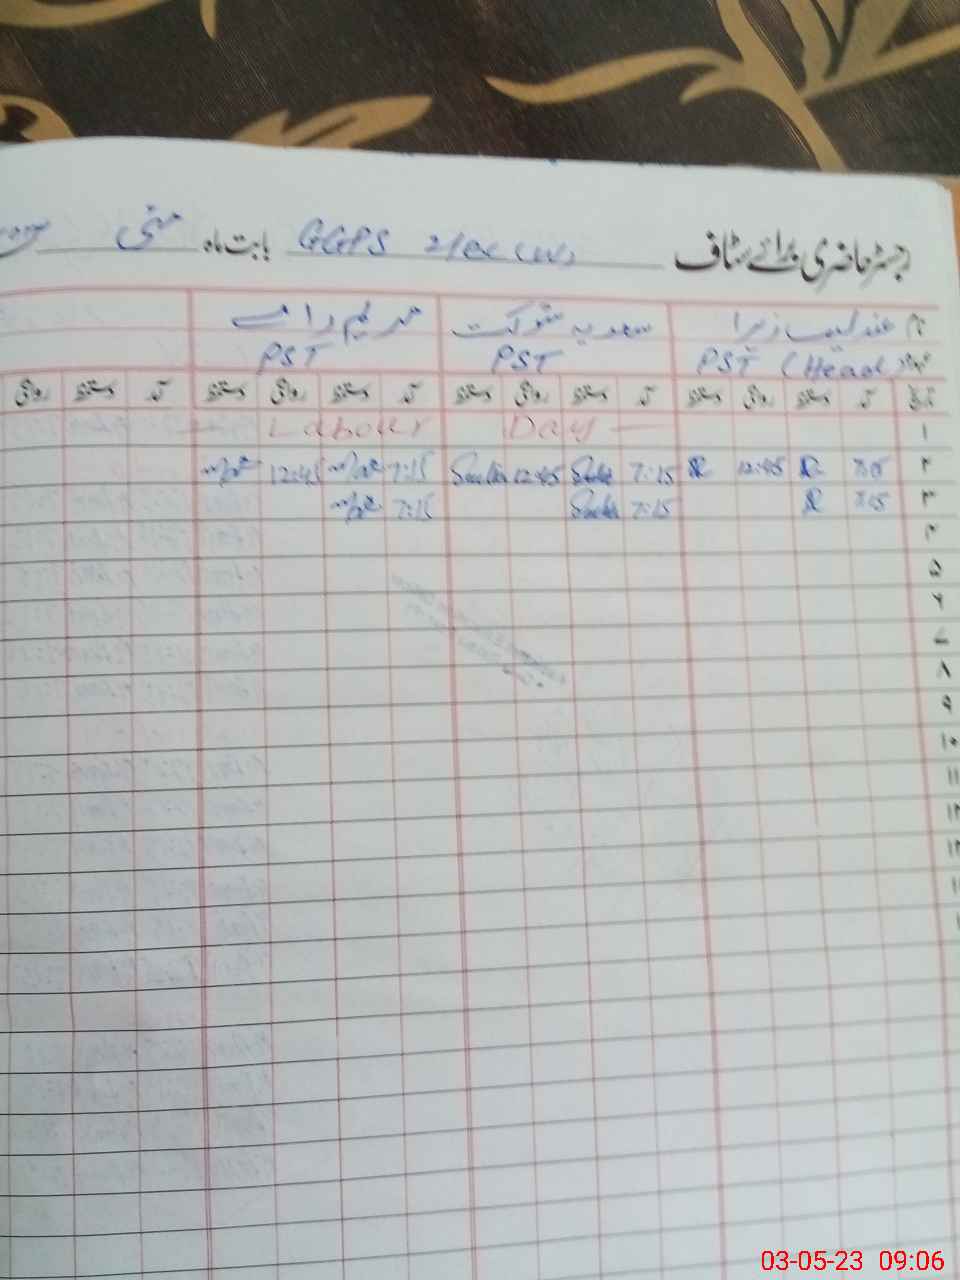 رجسٹر حاضری برائے سٹاف GGPS بابت ماہ مئی
نام عندلیب زہرا سعدیہ شوکت مریم
عہدہ PST (Head) PST PST
تاریخ آمد دستخط روانگی دستخط آمد دستخط روانگی دستخط آمد دستخط روانگی دستخط آمد دستخط روانگی
۱ Labour Day
۲ 7:15 12:45 7:15 Sadia 12:45 Sadia 7:15 12:45
۳ 7:15 7:15 Sadia 7:15
۴
۵
۶
۷
۸
۹
۱۰
۱۱
۱۲
۱۳
03-05-23 09:06